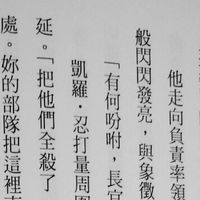 他走向負責率領
般閃閃發亮，與象徵
「有何吩咐，長官
凱羅・忍打量周
延。「把他們全殺了
處。妳的部隊把這裡